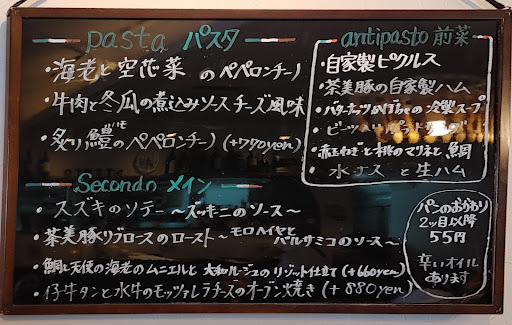 pasta パスタ
・海老と空芯菜のペペロンチーノ
・牛肉と冬瓜の煮込みソース チーズ風味
・炙り鱧のペペロンチーノ (+770yen)
Secondo メイン
・スズキのソテー ～ズッキーニのソース～
・茶美豚リブロースのロースト ～モロヘイヤとバルサミコのソース～
・鯛と天使の海老のムニエルと大和ルージュのリゾット仕立て (+660yen)
・仔牛タンと水牛のモッツァレラチーズのオーブン焼き (+880yen)
antipasto 前菜
・自家製ピクルス
・茶美豚の自家製ハム
・バターナッツかぼちゃの冷製スープ
・赤玉ねぎと桃のマリネと鯛
・水ナスと生ハム
パンのおかわり
2ッ目以降
55円
辛いオイル
あります